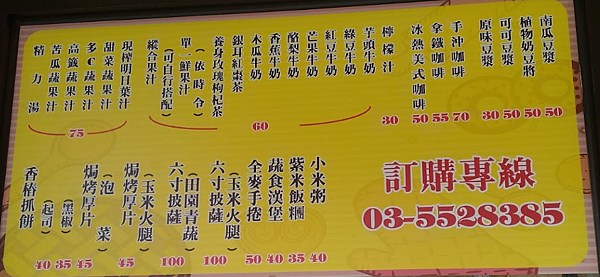 南瓜豆漿 50
植物奶豆將 50
可可豆漿 50
原味豆漿 30
手沖咖啡 70
拿鐵咖啡 55
冰熱美式咖啡 50
檸檬汁 30
芋頭牛奶
綠豆牛奶
紅豆牛奶
芒果牛奶
酪梨牛奶
香蕉牛奶
木瓜牛奶
銀耳紅棗茶
養身玫瑰枸杞茶
(依時令)
單一鮮果汁
(可自行搭配)
縱合果汁
60
現榨明日葉汁
甜菜蔬果汁
多C蔬果汁
高纖蔬果汁
苦瓜蔬果汁
精力湯
75
訂購專線
03-5528385
小米粥 40
紫米飯糰 35
蔬食漢堡 40
全麥手捲 50
(玉米火腿)
六寸披薩 100
(田園青蔬)
六寸披薩 100
(玉米火腿)
焗烤厚片 45
(泡菜)
焗烤厚片 45
(黑椒) 35
(起司) 40
香椿抓餅